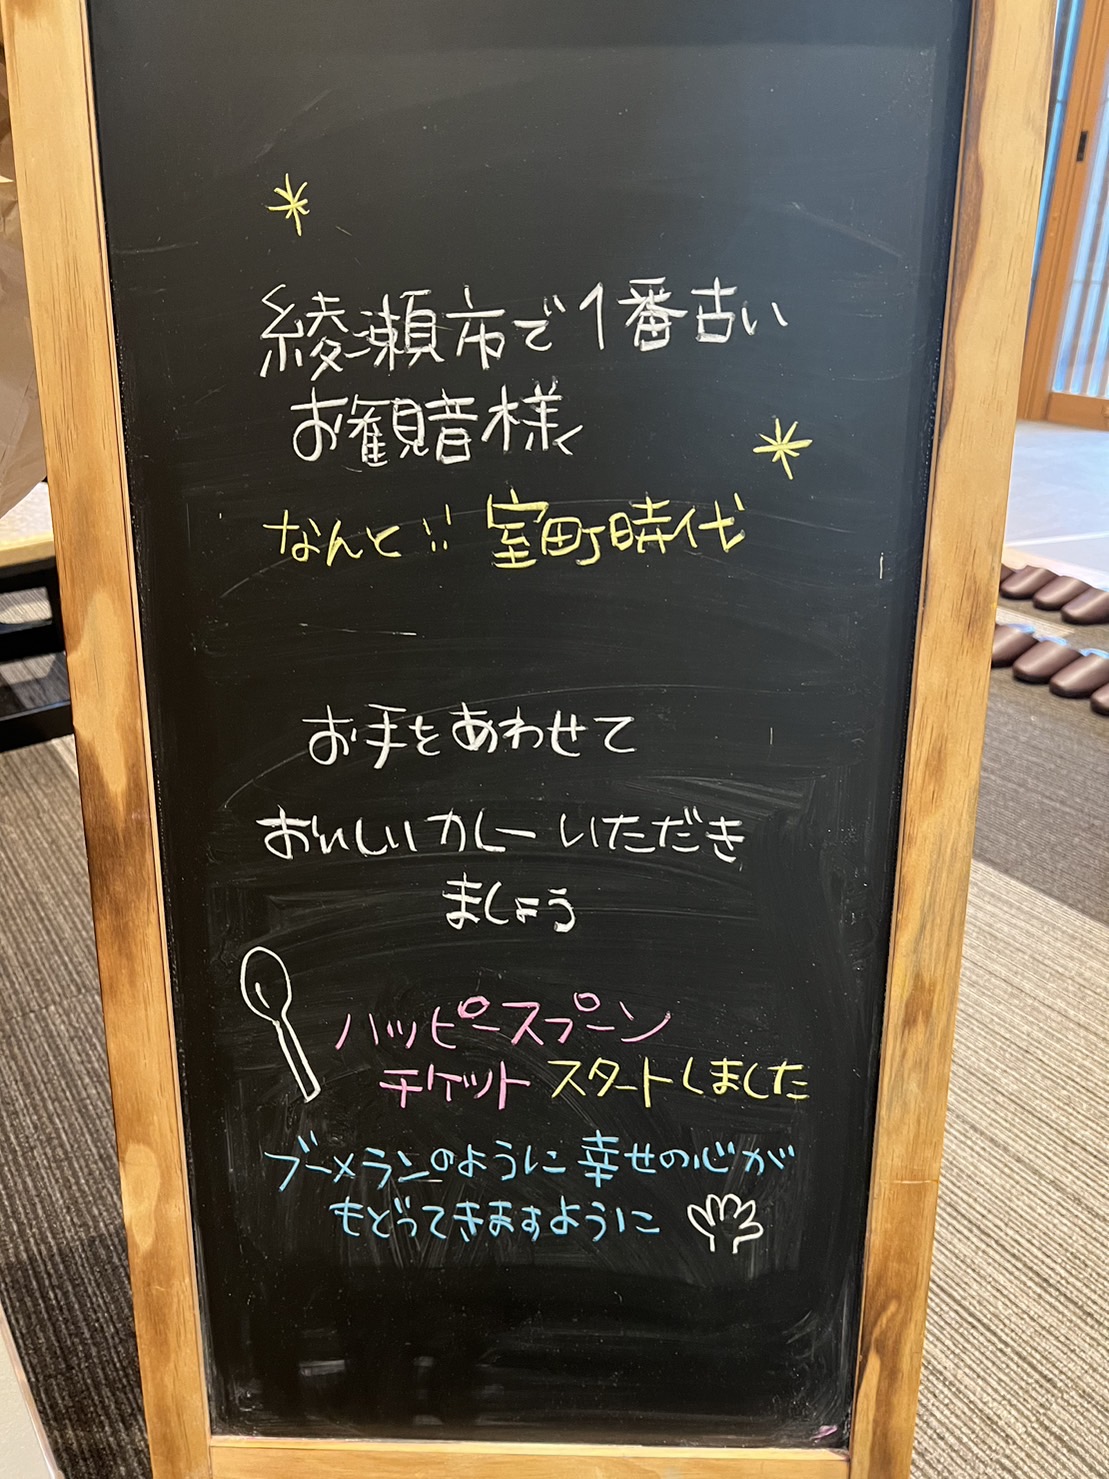 綾瀬市で1番古い
お観音様
なんと!! 室町時代
お手をあわせて
おいしいカレーいただき
ましょう
ハッピースプーン
チケットスタートしました
ブーメランのように幸せの心が
もどってきますように